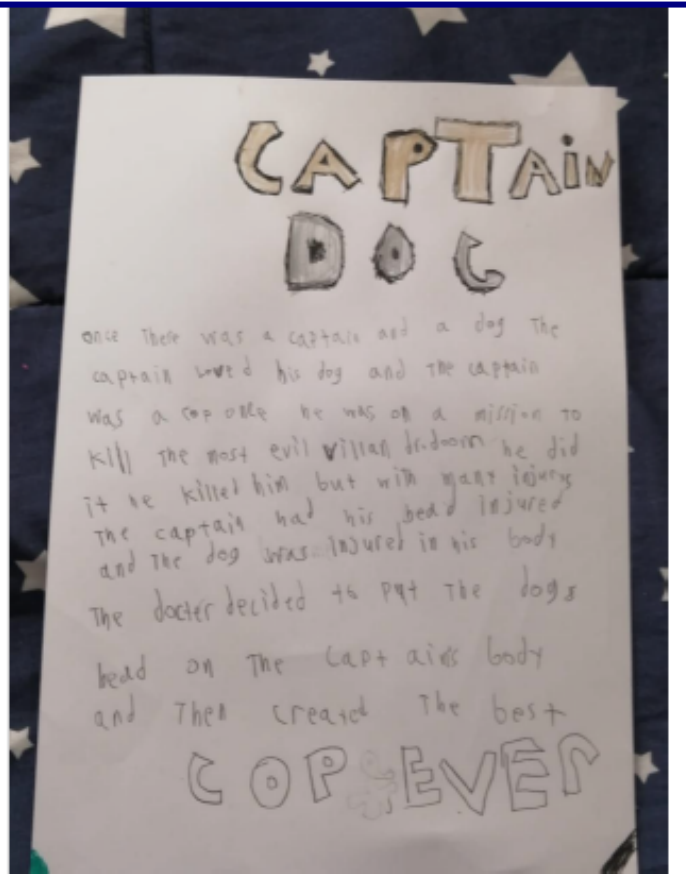 CAPTAIN
DOG
once There was a captain and a dog The
captain loved his dog and The captain
was a cop once he was on a mission to
kill The most evil villan dr.doom he did
it he killed him but with many injurys
The captain had his head injured
and The dog was injured in his body
The docter decided to put The dogs
head on The Captains body
and Then created The best
COP EVER